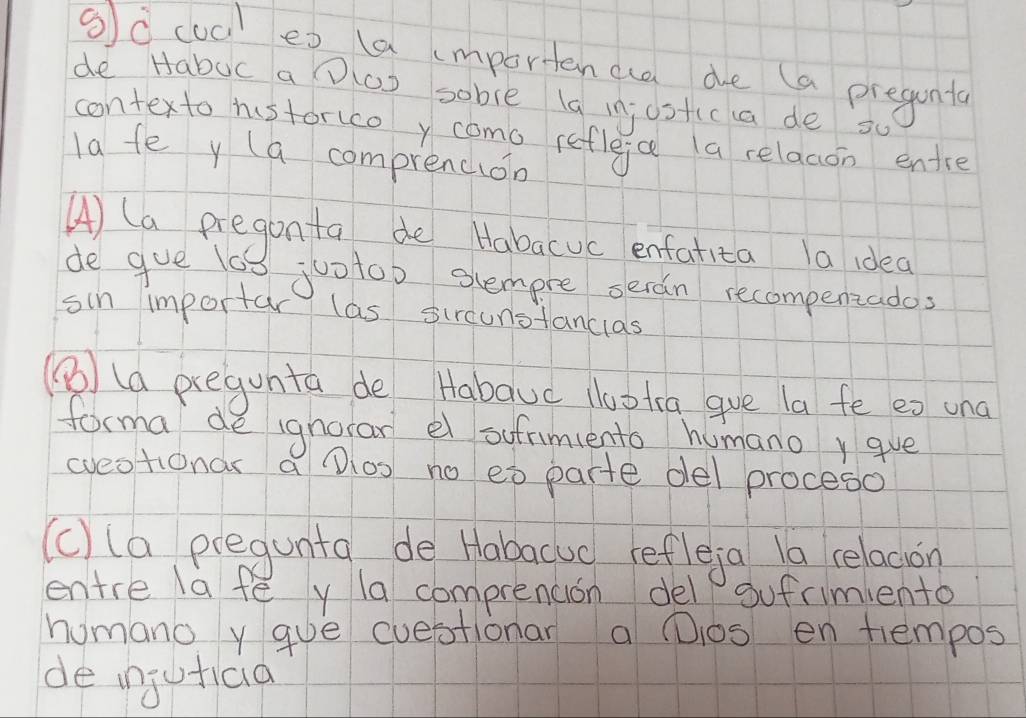 8) ¿ cual es la importancia de la pregunta
de Habuc a Dios sobre la injusticia de su
contexto historico y como refleja la relación entre
la fe y la comprención
(A) la pregunta de Habacuc enfatiza la idea
de que los justos siempre serán recompenzados
sin importar las sircunstancias
(B) la pregunta de Habauc llustra que la fe es una
forma de ignorar el sufrimiento humano y que
cuestionar a Dios no es parte del proceso
(C) la pregunta de Habacuc refleja la relación
entre la fe y la comprención del sufrimiento
humano y que cuestionar a Dios en tiempos
de injuticia